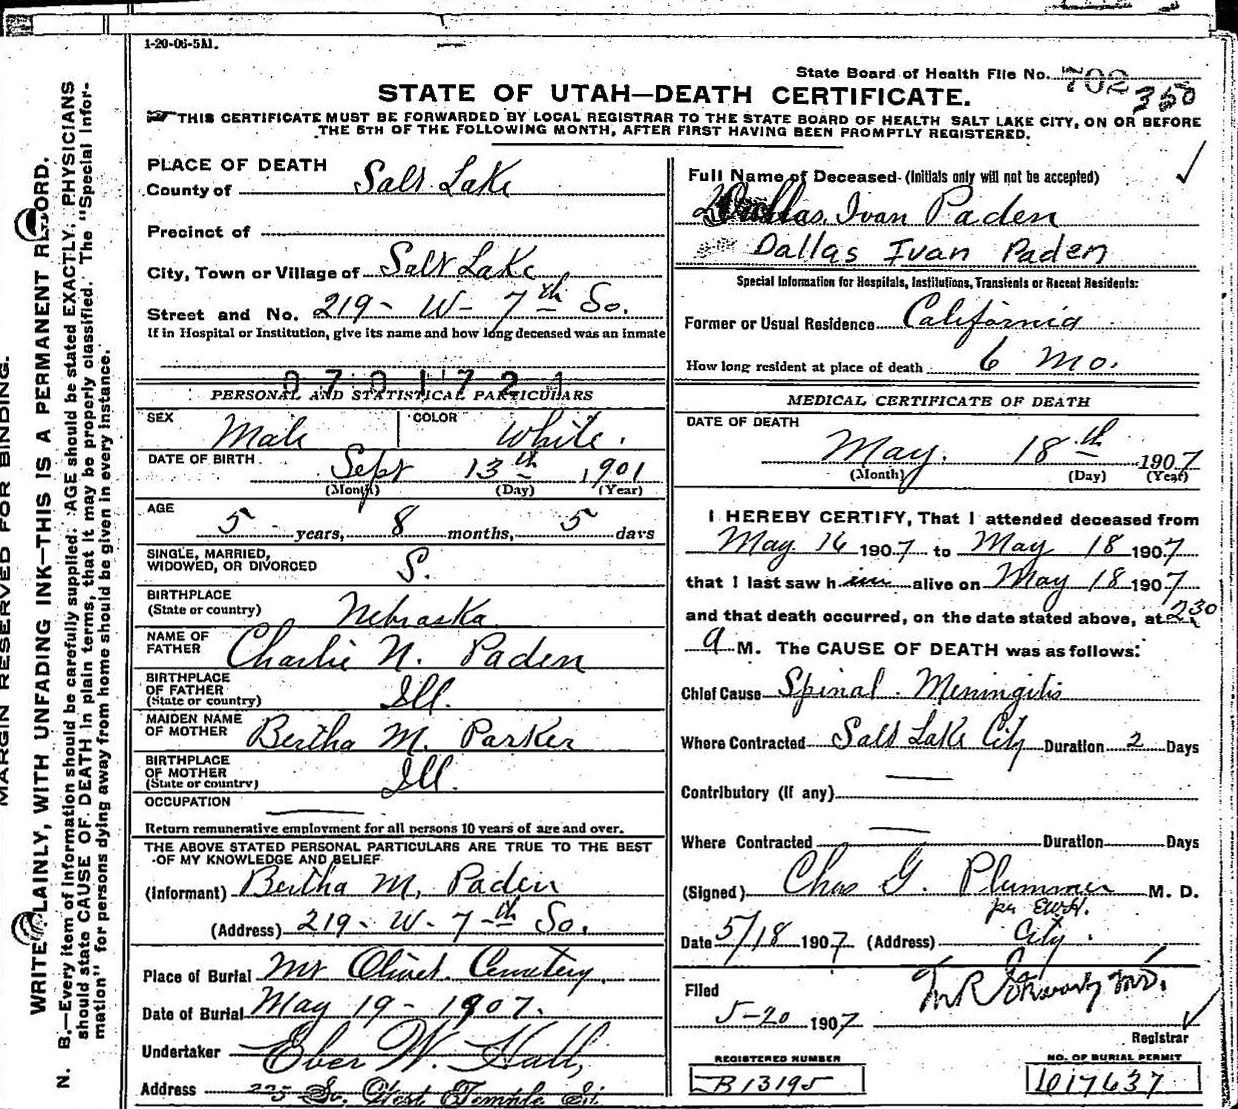 1-20-06-5M.
State Board of Health File No. 702
350
STATE OF UTAH—DEATH CERTIFICATE.
THIS CERTIFICATE MUST BE FORWARDED BY LOCAL REGISTRAR TO THE STATE BOARD OF HEALTH SALT LAKE CITY, ON OR BEFORE
THE 5TH OF THE FOLLOWING MONTH, AFTER FIRST HAVING BEEN PROMPTLY REGISTERED.
MARGIN RESERVED FOR BINDING.
WRITE PLAINLY, WITH UNFADING INK—THIS IS A PERMANENT RECORD.
N. B.—Every item of information should be carefully supplied. AGE should be stated EXACTLY. PHYSICIANS
should state CAUSE OF DEATH in plain terms, that it may be properly classified. The "Special Infor-
mation" for persons dying away from home should be given in every instance.
PLACE OF DEATH
County of Salt Lake
Precinct of
City, Town or Village of Salt Lake
Street and No. 219 - W - 7th So.
If in Hospital or Institution, give its name and how long deceased was an inmate
0701721
PERSONAL AND STATISTICAL PARTICULARS
SEX Male COLOR White.
DATE OF BIRTH Sept 13th 1901
(Month) (Day) (Year)
AGE
5 years, 8 months, 5 days
SINGLE, MARRIED,
WIDOWED, OR DIVORCED S.
BIRTHPLACE
(State or country) Nebraska
NAME OF
FATHER Charlie N. Paden
BIRTHPLACE
OF FATHER
(State or country) Ill.
MAIDEN NAME
OF MOTHER Bertha M. Parker
BIRTHPLACE
OF MOTHER
(State or country) Ill.
OCCUPATION
Return remunerative employment for all persons 10 years of age and over.
THE ABOVE STATED PERSONAL PARTICULARS ARE TRUE TO THE BEST
OF MY KNOWLEDGE AND BELIEF
(Informant) Bertha M. Paden
(Address) 219 - W - 7th So.
Place of Burial Mt Olivet Cemetery
Date of Burial May 19 - 1907.
Undertaker Eber W. Hall,
Address 225 So. West Temple St.
Full Name of Deceased (Initials only will not be accepted)
Dallas Ivan Paden
Dallas Ivan Paden
Special Information for Hospitals, Institutions, Transients or Recent Residents:
Former or Usual Residence California
How long resident at place of death 6 Mo.
MEDICAL CERTIFICATE OF DEATH
DATE OF DEATH
May. 18th 1907
(Month) (Day) (Year)
I HEREBY CERTIFY, That I attended deceased from
May 16 1907 to May 18 1907
that I last saw him alive on May 18 1907
and that death occurred, on the date stated above, at 230
a M. The CAUSE OF DEATH was as follows:
Chief Cause Spinal Meningitis
Where Contracted Salt Lake City Duration 2 Days
Contributory (If any)
Where Contracted Duration Days
(Signed) Chas G. Plummer M. D.
per EWH.
Date 5/18 1907 (Address) City.
Filed
5-20 1907
Registrar
REGISTERED NUMBER
B13195
NO. OF BURIAL PERMIT
1017637